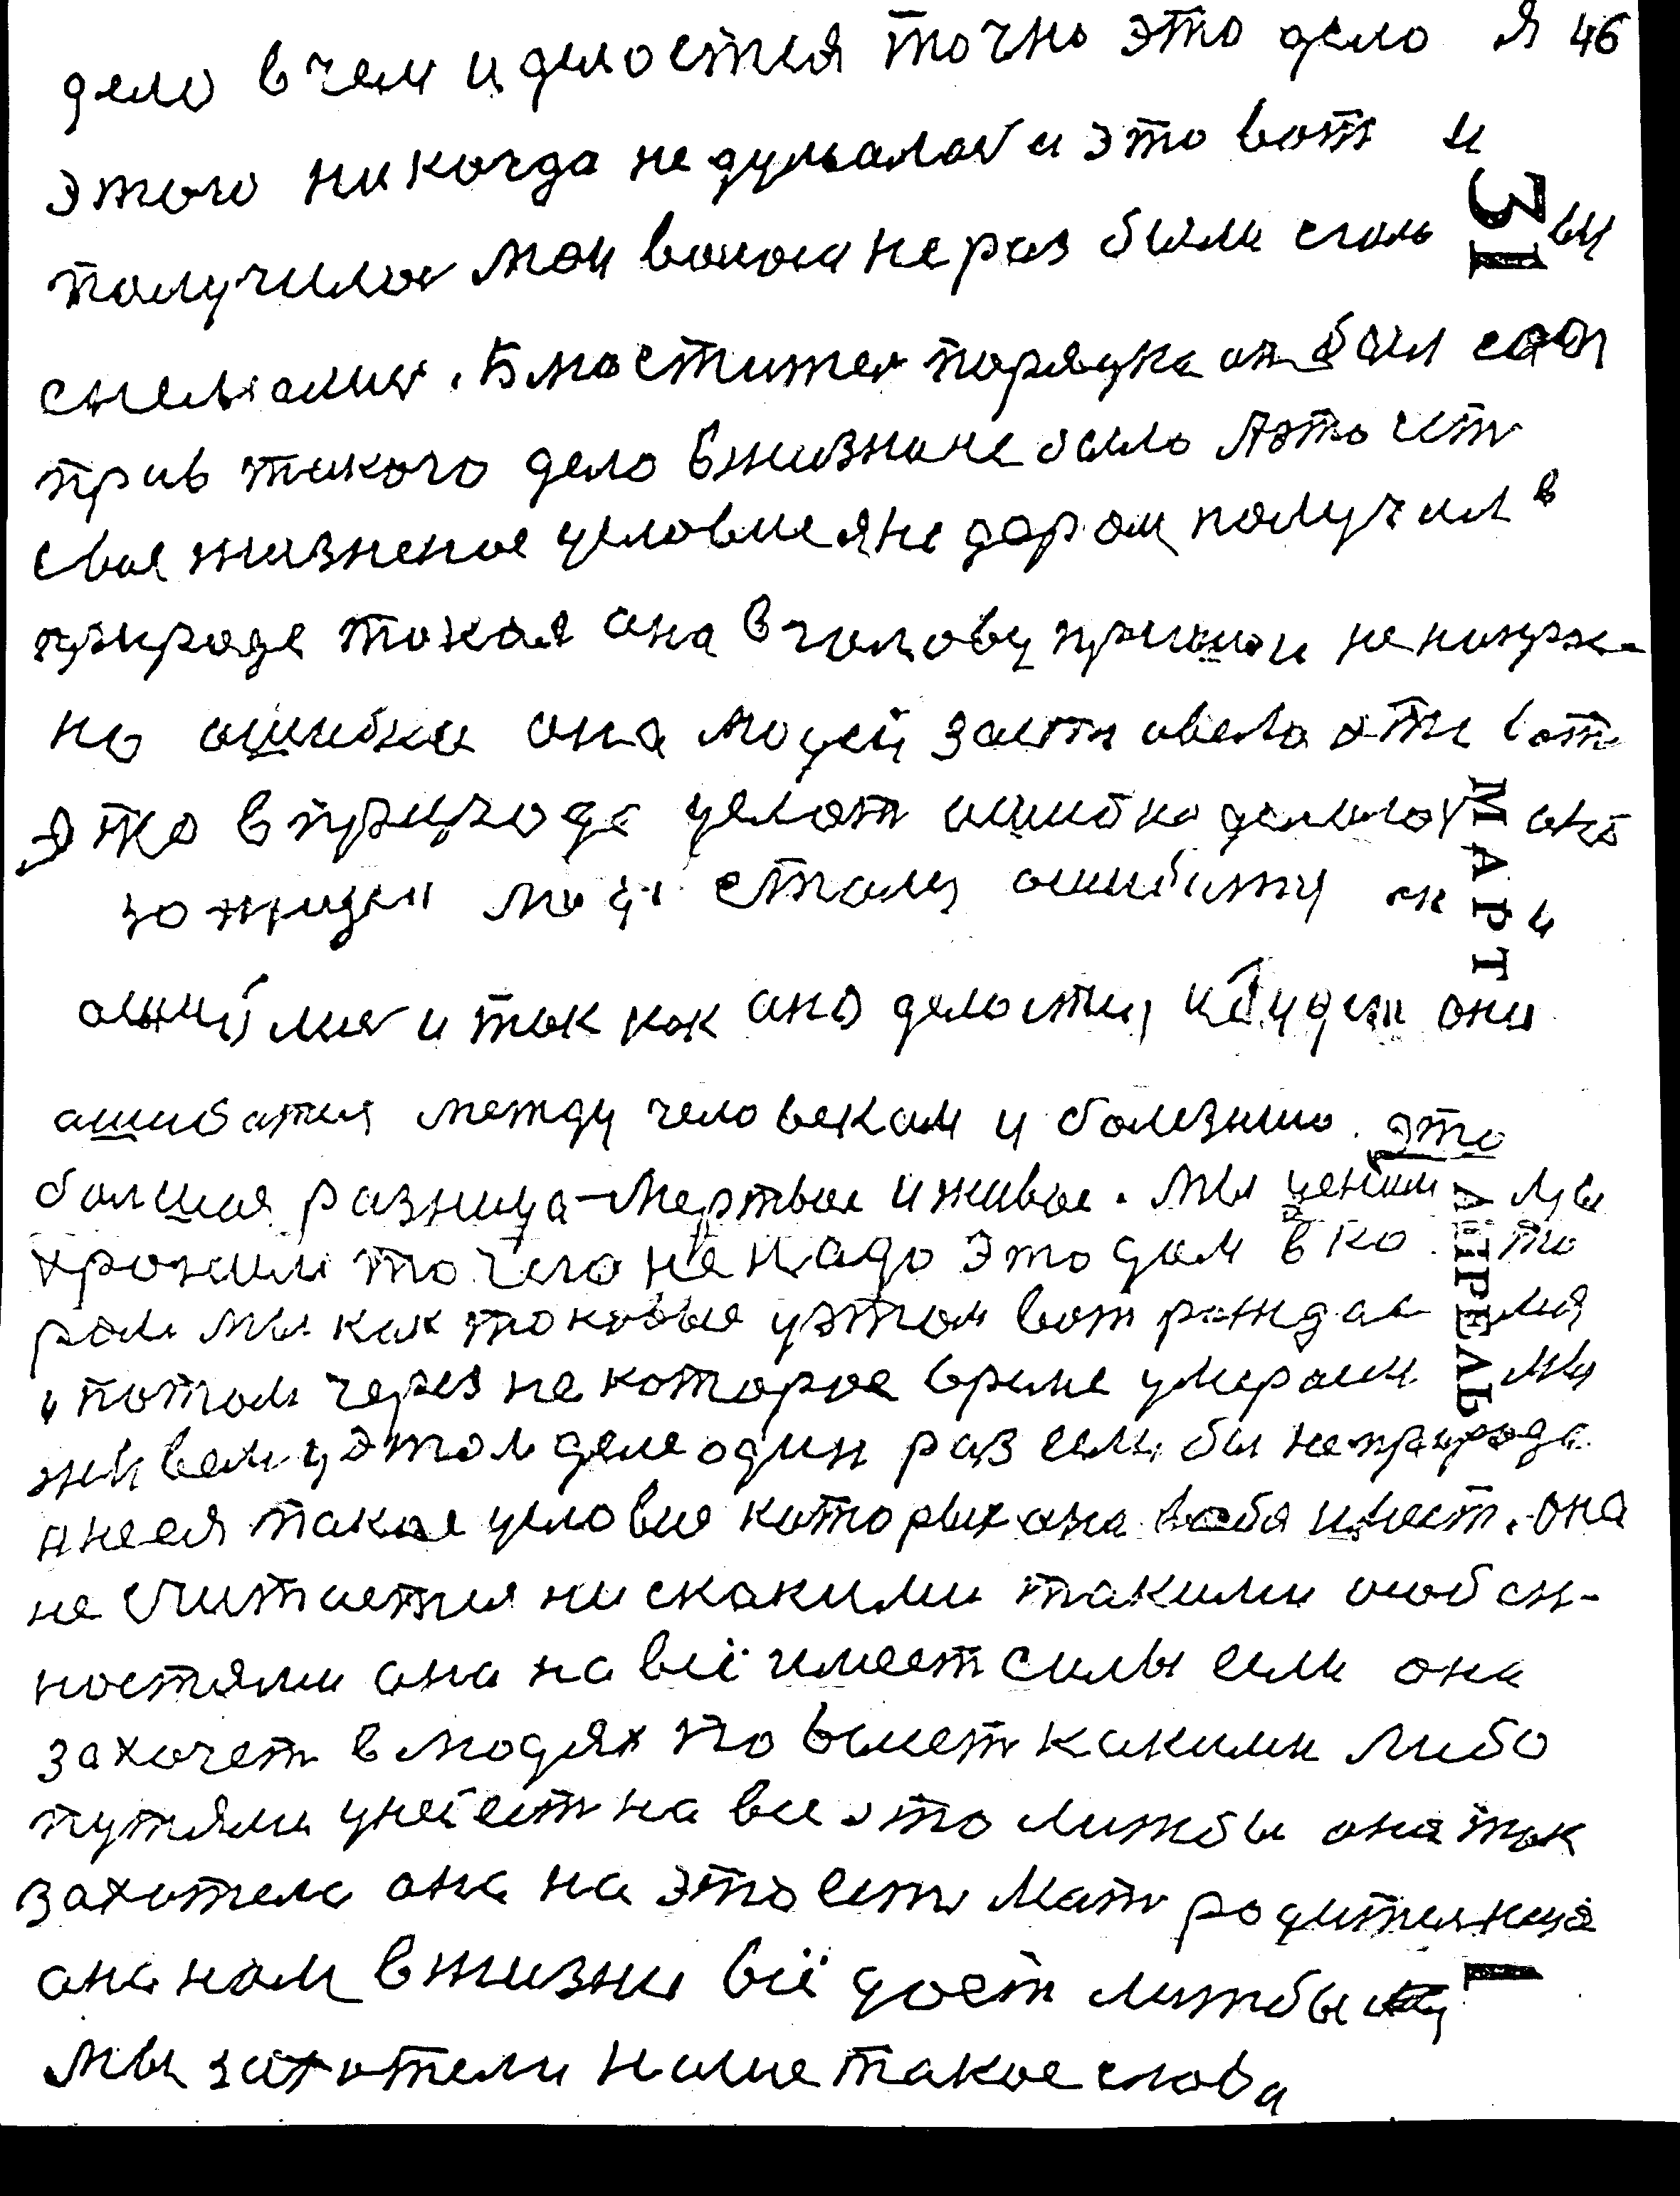 дело в чем и делоется точно это дело я 46
этого никогда не думалос и это вот и
получилос мои волоса не раз были
31
снемалис. Блюстител порядка он был
прав такого дело вжизни не было Аэто ист
свое жизненое условие яне даром получил в
природе токая она в голову пришла и не
но ошибки она людей заставела эти вот
это в природе делат ошибка делалас
МАРТ
за людей стали ошибатя они и
ошиблис и так как оно делоется и будут они
ашибатя между человеком и болезнию. это
болшая разница-Мертвое и живое. Мы ценим мы
храним то чего не надо это дом в ко то
ром мы как токовые уэтом вот рождаемся
АПРЕЛЬ
и потом через не которое время умераем мы
живем уэтом деле один раз если бы не природа
анеея такие условие которых она имеет. она
не считается нискакими такими особен-
ностями она на всё имеет силы если она
захочет в людях то вымет какими либо
путями унеё ест на все это литбы она так
захотела она на это есть Мать родителница
она нам вжизни всё дает литбы
мы захотели наше такое слова